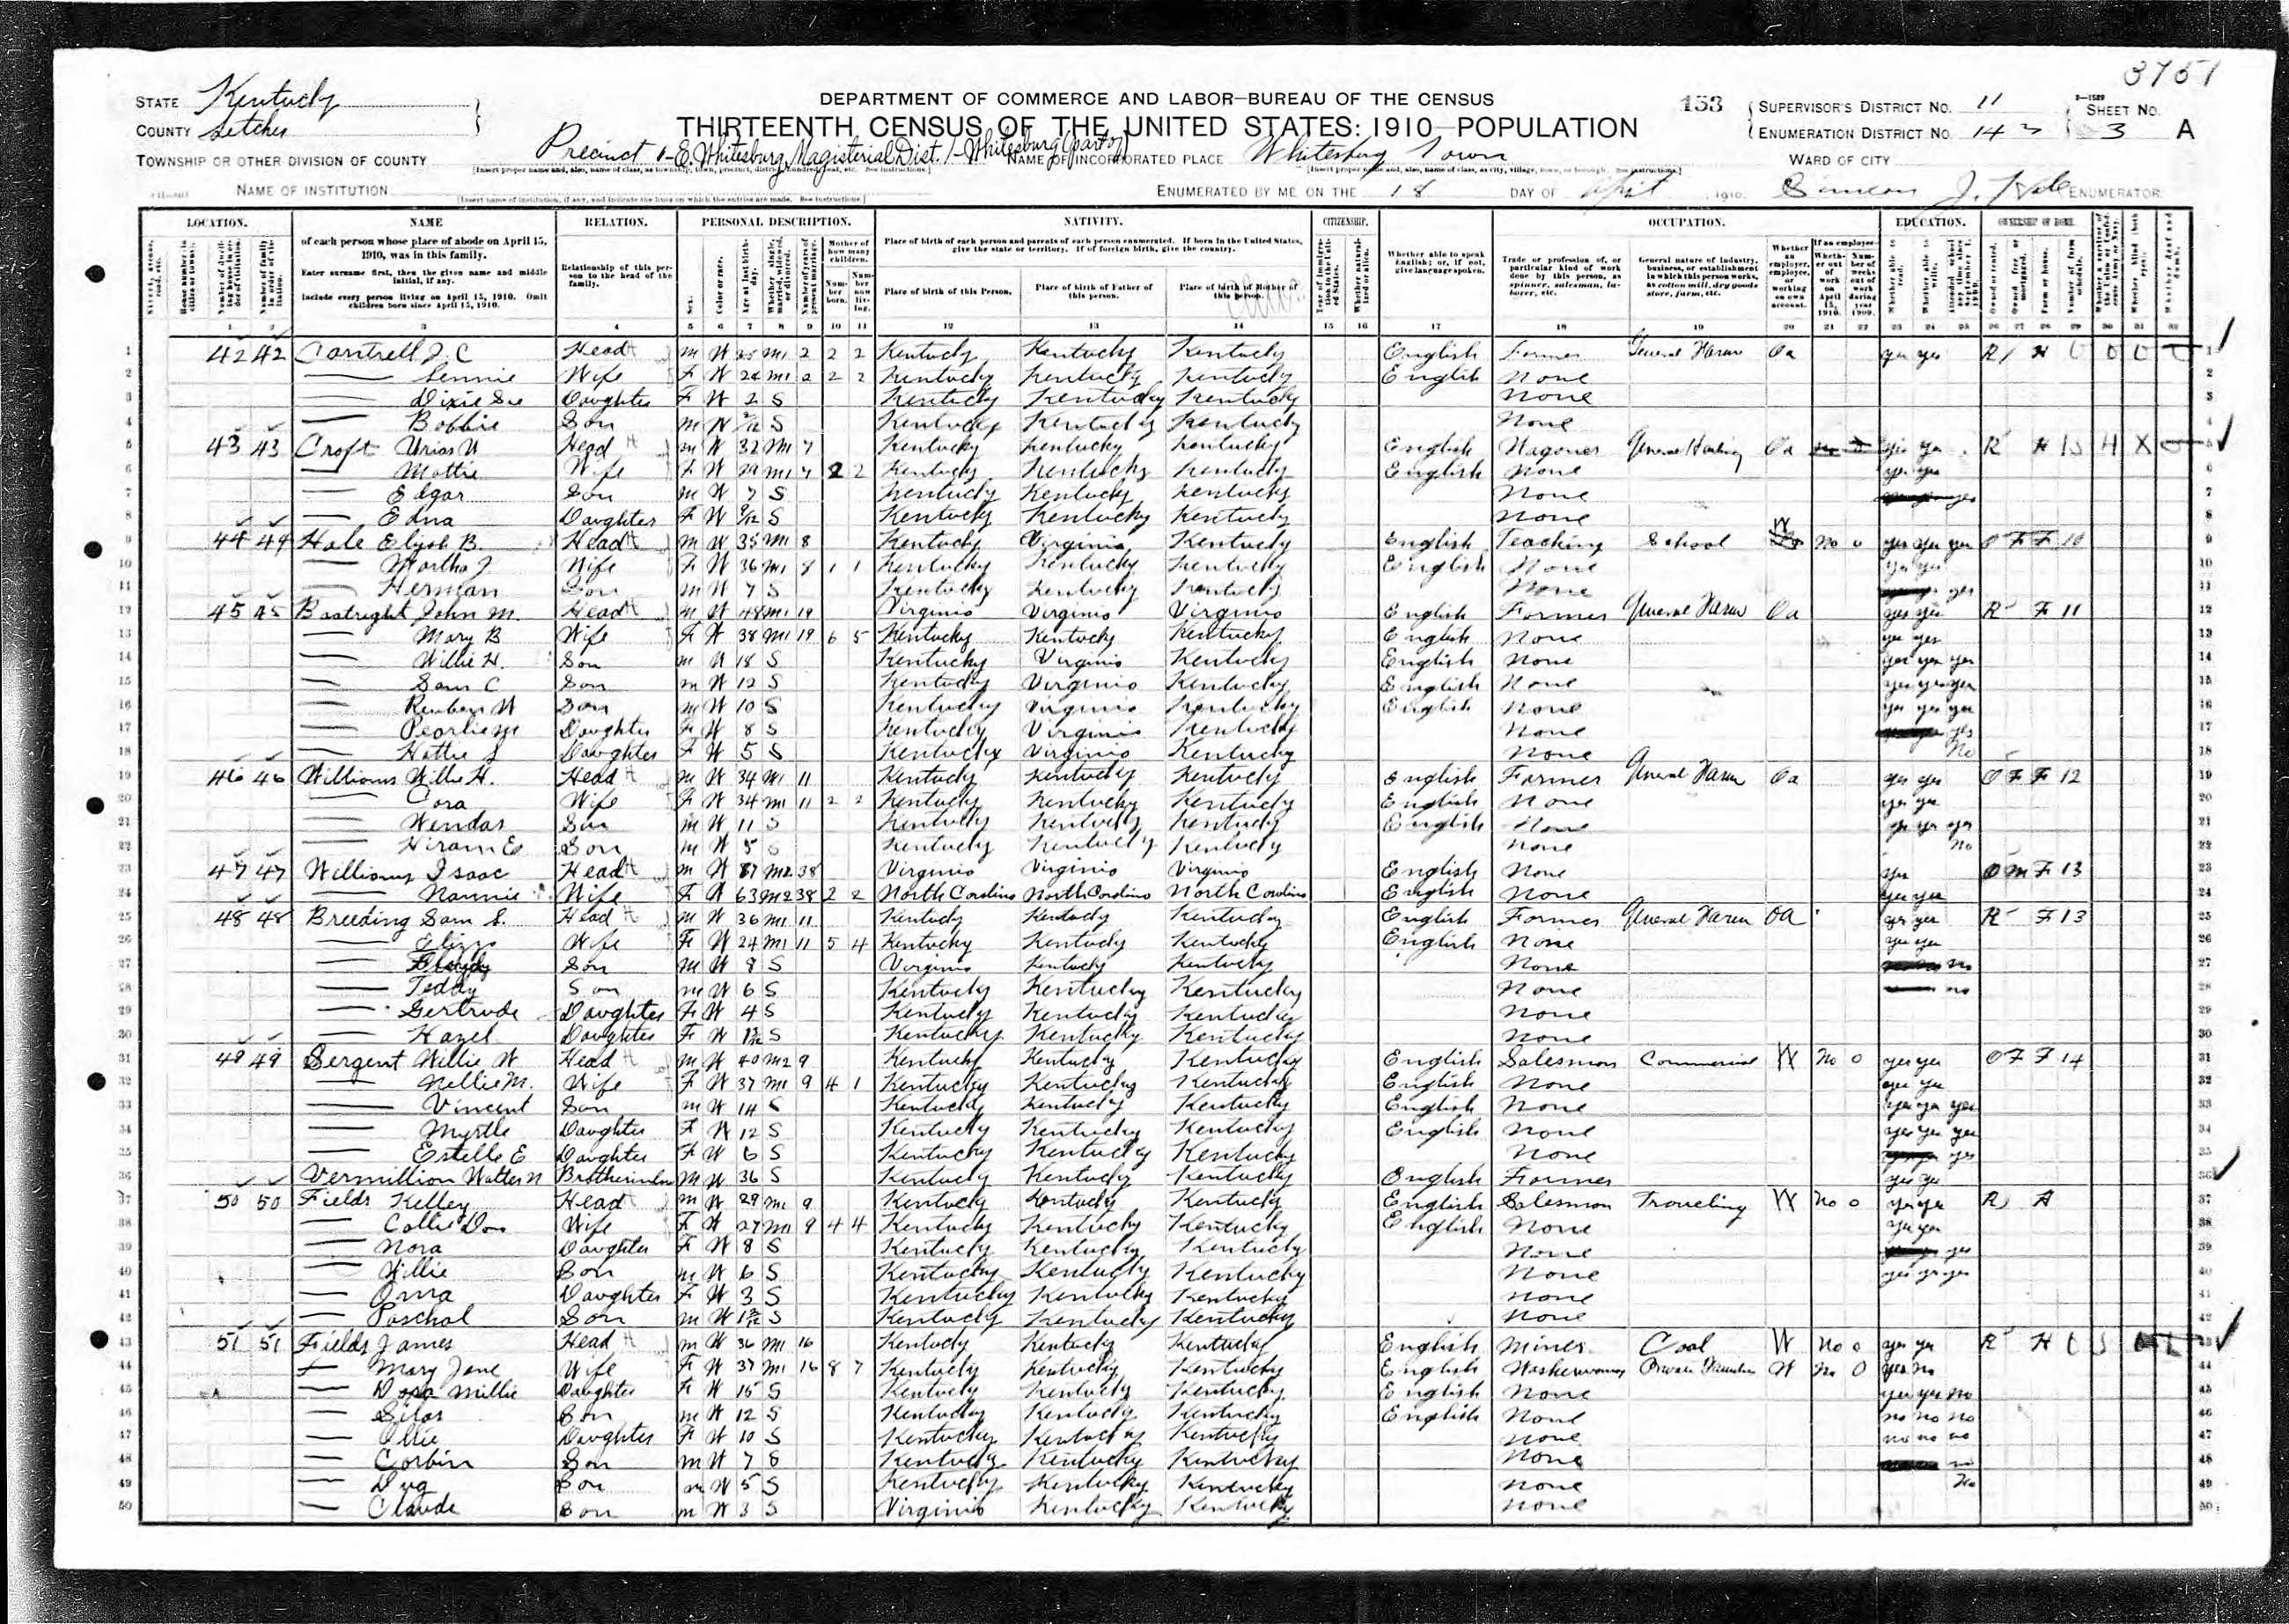 3751
STATE Kentucky
COUNTY Letcher
TOWNSHIP OR OTHER DIVISION OF COUNTY Precinct 1-E. Whitesburg Magisterial Dist. 1-Whitesburg (part of)
NAME OF INSTITUTION
DEPARTMENT OF COMMERCE AND LABOR—BUREAU OF THE CENSUS
THIRTEENTH CENSUS OF THE UNITED STATES: 1910—POPULATION
NAME OF INCORPORATED PLACE Whitesburg Town
ENUMERATED BY ME ON THE 18 DAY OF April, 1910. Simeon J. Hale ENUMERATOR.
153
SUPERVISOR'S DISTRICT No. 11
ENUMERATION DISTRICT No. 143
SHEET No. 3 A
WARD OF CITY
LOCATION. NAME RELATION. PERSONAL DESCRIPTION. NATIVITY. CITIZENSHIP. OCCUPATION. EDUCATION. OWNERSHIP OF HOME.
of each person whose place of abode on April 15, 1910, was in this family.
Enter surname first, then the given name and middle initial, if any.
Include every person living on April 15, 1910. Omit children born since April 15, 1910.
Relationship of this person to the head of the family.
Place of birth of each person and parents of each person enumerated. If born in the United States, give the state or territory. If of foreign birth, give the country.
Place of birth of this Person. Place of birth of Father of this person. Place of birth of Mother of this person.
Whether able to speak English; or, if not, give language spoken.
Trade or profession of, or particular kind of work done by this person, as spinner, salesman, laborer, etc.
General nature of industry, business, or establishment in which this person works, as cotton mill, dry goods store, farm, etc.
Whether an employer, employee, or working on own account.
1 2 3 4 5 6 7 8 9 10 11 12 13 14 15 16 17 18 19 20 21 22 23 24 25 26 27 28 29 30 31 32
1 42 42 Cantrell J. C Head m W 35 m1 2 2 2 Kentucky Kentucky Kentucky English Farmer General Farm Oa yes yes R H
2 Wife F W 24 m1 2 2 2 Kentucky Kentucky Kentucky English None
3 Dixie Sue Daughter F W 2 S Kentucky Kentucky Kentucky None
4 Bobbie Son m W S Kentucky Kentucky Kentucky None
5 43 43 Croft Urias W Head m W 32 m1 7 Kentucky Kentucky Kentucky English Wagoner General Hauling Oa yes yes R H
6 Mattie Wife F W 29 m1 7 2 2 Kentucky Kentucky Kentucky English None yes yes
7 Edgar Son m W 7 S Kentucky Kentucky Kentucky None yes
8 Edna Daughter F W 9/12 S Kentucky Kentucky Kentucky None
9 44 44 Hale Elijah B. Head m W 35 m1 8 Kentucky Virginia Kentucky English Teaching School W No 0 yes yes yes O F F 10
10 Martha J Wife F W 36 m1 8 1 1 Kentucky Kentucky Kentucky English None yes yes
11 Herman Son m W 7 S Kentucky Kentucky Kentucky None yes
12 45 45 Boatright John M. Head m W 48 m1 19 Virginia Virginia Virginia English Farmer General Farm Oa yes yes R F 11
13 Mary B Wife F W 38 m1 19 6 5 Kentucky Kentucky Kentucky English None yes yes
14 Willie H. Son m W 18 S Kentucky Virginia Kentucky English None yes yes yes
15 Sam C Son m W 12 S Kentucky Virginia Kentucky English None yes yes yes
16 Reuben W Son m W 10 S Kentucky Virginia Kentucky English None yes yes yes
17 Pearlie M Daughter F W 8 S Kentucky Virginia Kentucky None yes
18 Hattie J Daughter F W 5 S Kentucky Virginia Kentucky None No
19 46 46 Williams Willie H. Head m W 34 m1 11 Kentucky Kentucky Kentucky English Farmer General Farm Oa yes yes O F F 12
20 Cora Wife F W 34 m1 11 2 2 Kentucky Kentucky Kentucky English None yes yes
21 Wendas Son m W 11 S Kentucky Kentucky Kentucky English None yes yes yes
22 Hiram E Son m W 5 S Kentucky Kentucky Kentucky None No
23 47 47 Williams Isaac Head m W 87 m2 38 Virginia Virginia Virginia English None yes O M F 13
24 Nannie Wife F W 63 m2 38 2 2 North Carolina North Carolina North Carolina English None yes yes
25 48 48 Breeding Sam S. Head m W 36 m1 11 Kentucky Kentucky Kentucky English Farmer General Farm OA yes yes R F 13
26 Eliza Wife F W 24 m1 11 5 4 Kentucky Kentucky Kentucky English None yes yes
27 Son m W 8 S Virginia Kentucky Kentucky None no
28 Teddy Son m W 6 S Kentucky Kentucky Kentucky None no
29 Gertrude Daughter F W 4 S Kentucky Kentucky Kentucky None
30 Hazel Daughter F W S Kentucky Kentucky Kentucky None
31 49 49 Sergent Willie W Head m W 40 m2 9 Kentucky Kentucky Kentucky English Salesman Commercial W No 0 yes yes O F F 14
32 Nellie M. Wife F W 37 m1 9 4 1 Kentucky Kentucky Kentucky English None yes yes
33 Vincent Son m W 14 S Kentucky Kentucky Kentucky English None yes yes yes
34 Myrtle Daughter F W 12 S Kentucky Kentucky Kentucky English None yes yes yes
35 Estelle E Daughter F W 6 S Kentucky Kentucky Kentucky None yes
36 Vermillion Walter N Brotherinlaw M W 36 S Kentucky Kentucky Kentucky English Farmer yes yes
37 50 50 Fields Kelley Head m W 29 m1 9 Kentucky Kentucky Kentucky English Salesman Traveling W No 0 yes yes R H
38 Callie Don Wife F W 27 m1 9 4 4 Kentucky Kentucky Kentucky English None yes yes
39 Nora Daughter F W 8 S Kentucky Kentucky Kentucky None yes
40 Willie Son m W 6 S Kentucky Kentucky Kentucky None yes yes yes
41 Daughter F W 3 S Kentucky Kentucky Kentucky None
42 Paschal Son m W S Kentucky Kentucky Kentucky None
43 51 51 Fields James Head m W 36 m1 16 Kentucky Kentucky Kentucky English Miner Coal W No 0 yes yes R H
44 Mary Jane Wife F W 37 m1 16 8 7 Kentucky Kentucky Kentucky English Washerwoman Private Families W No 0 yes no
45 Millie Daughter F W 15 S Kentucky Kentucky Kentucky English None yes yes no
46 Silas Son m W 12 S Kentucky Kentucky Kentucky English None no no no
47 Ollie Daughter F W 10 S Kentucky Kentucky Kentucky None no no no
48 Corbin Son m W 7 S Kentucky Kentucky Kentucky None no
49 Dug Son m W 5 S Kentucky Kentucky Kentucky None No
50 Claude Son m W 3 S Virginia Kentucky Kentucky None